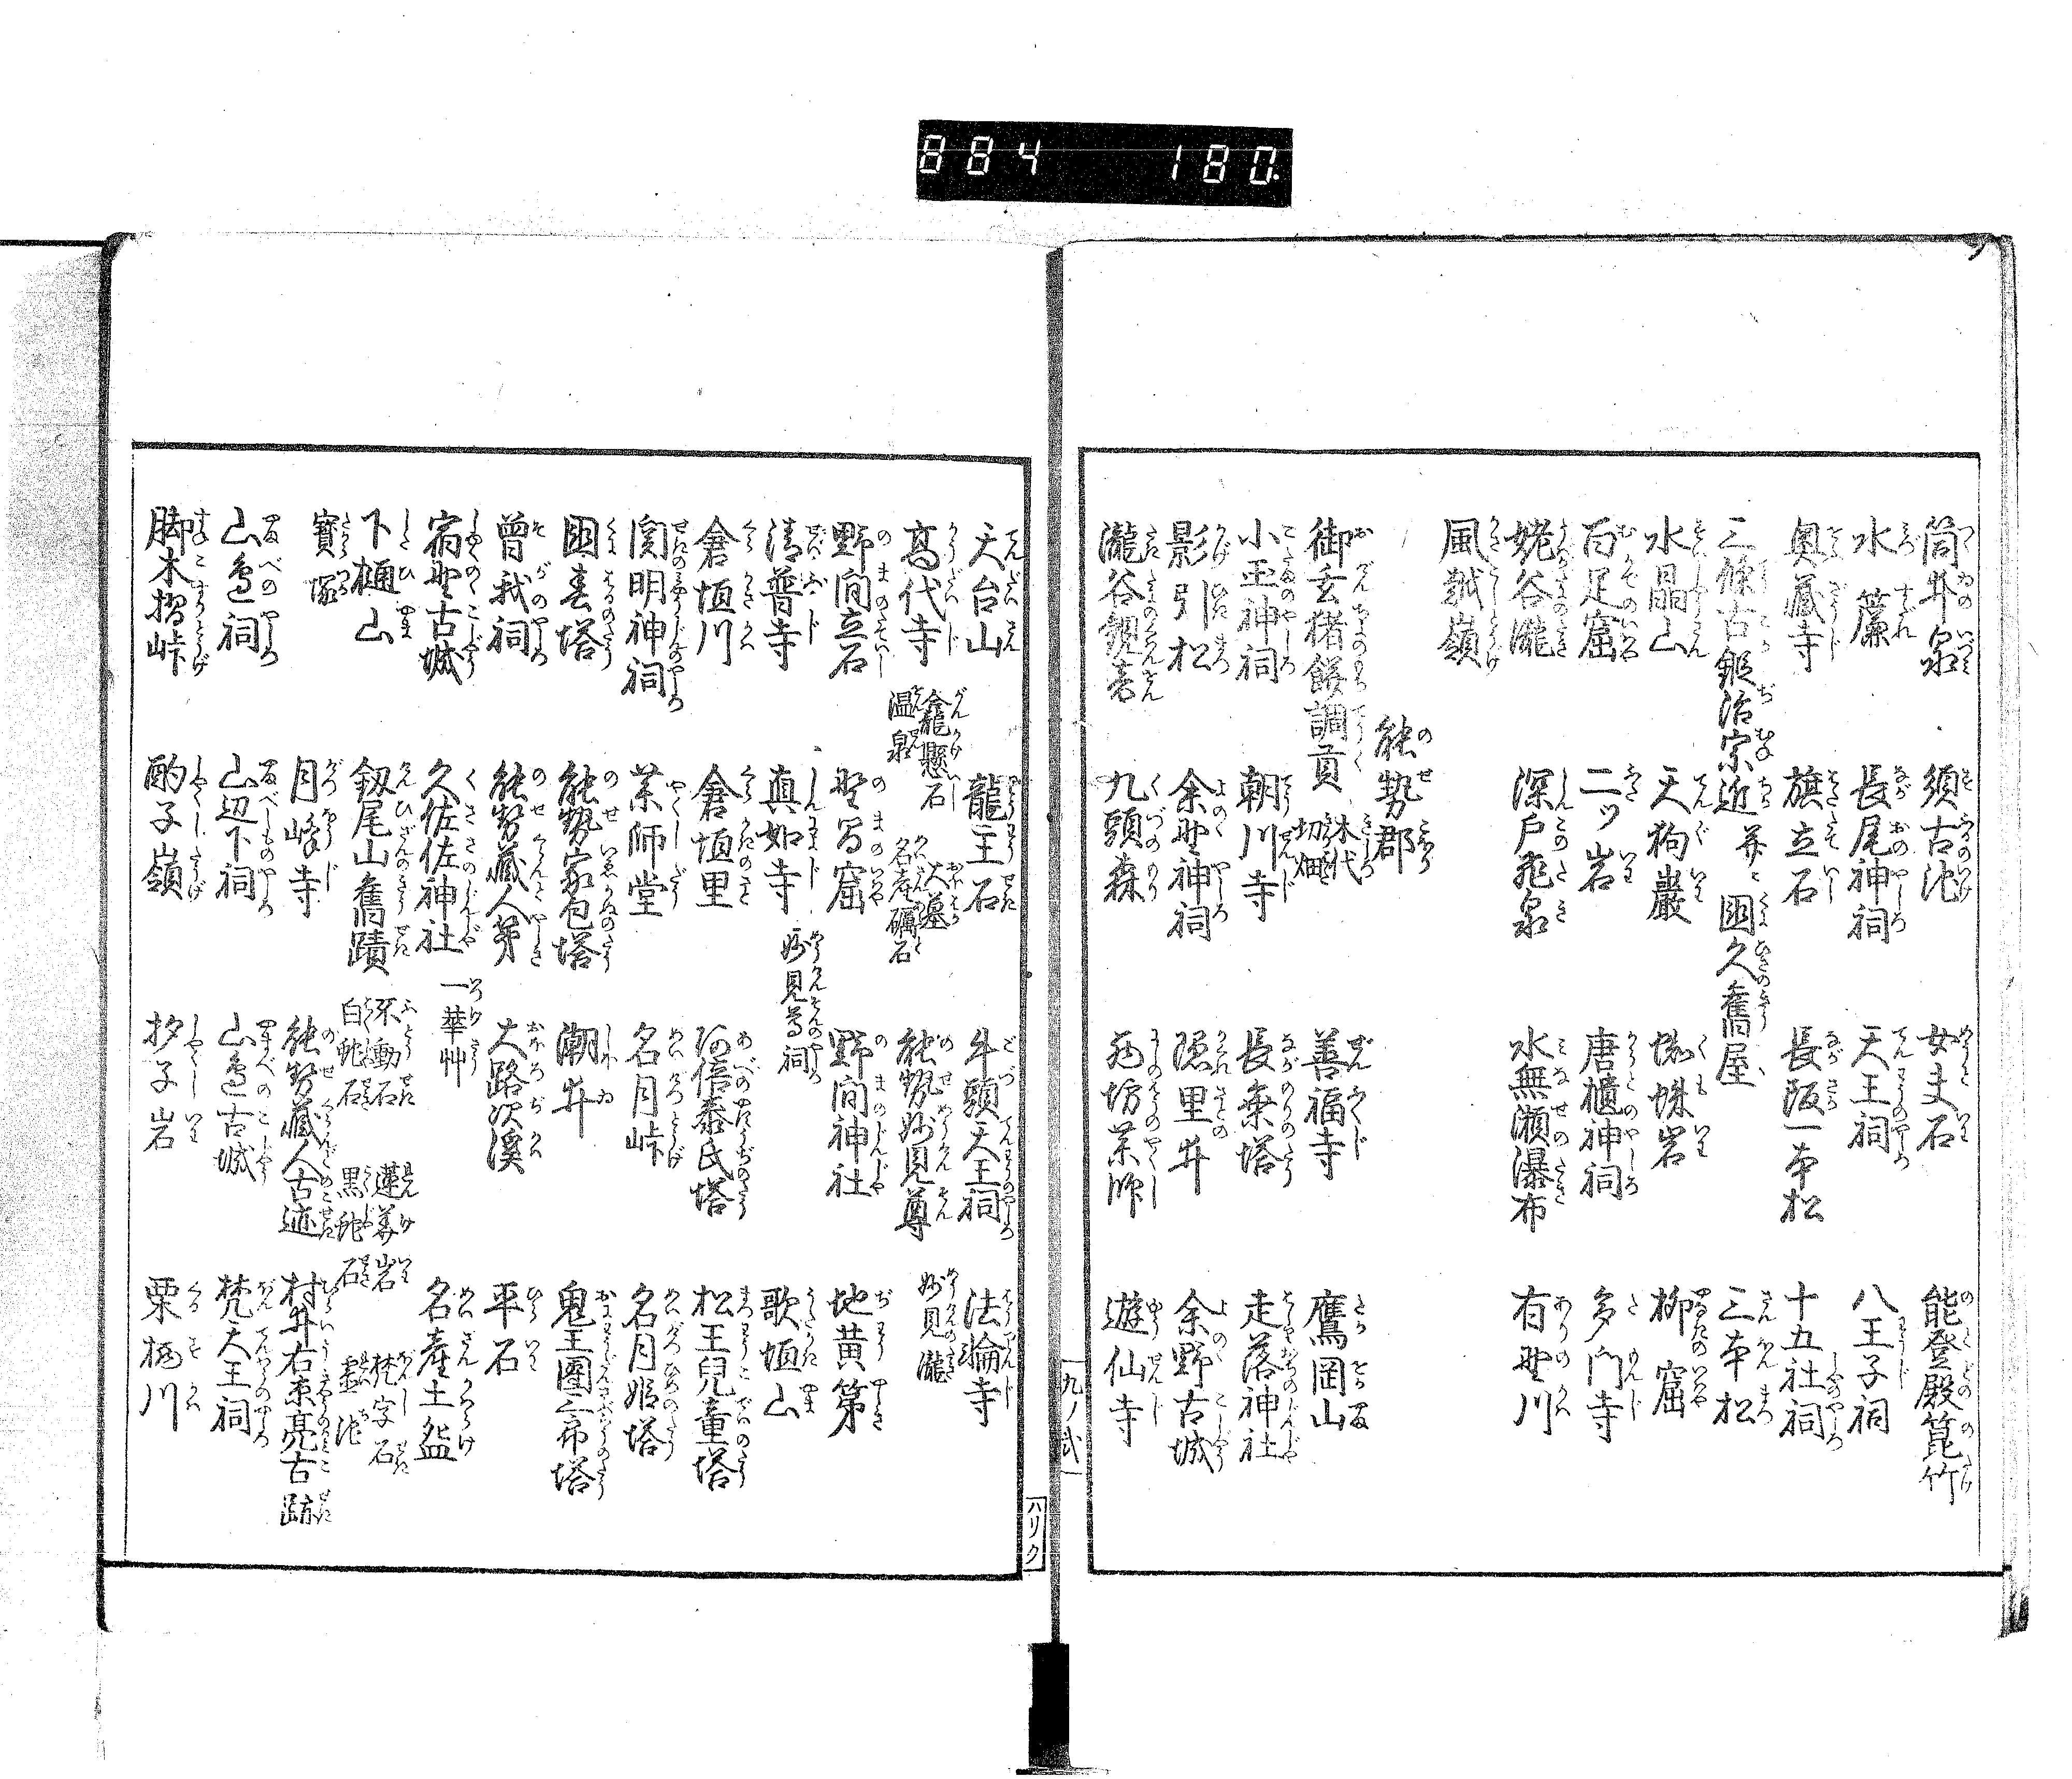 884 180.
筒井泉 須古池 女夫石 能登殿箟竹
水簾 長尾神祠 天王祠 八王子祠
奥蔵寺 旗立石 長阪一本松 十五社祠
三條古鍛冶宗近并ニ國久舊屋 三本松
水晶山 天狗巖 蜘蛛岩 柳窟
百足窟 二ツ岩 唐櫃神祠 多門寺
姥谷瀧 深戸飛泉 水無瀬瀑布 有野川
風越嶺
能勢郡
御玄猪餅調貢 木代 切畑 善福寺 鷹岡山
小玉神祠 朝川寺 長乗塔 走落神社
影引松 余野神祠 隠里井 余野古城
瀧谷観音 九頭森 坊薬師 遊仙寺
九ノ弐
ハリク
天台山 龍王石 牛頭天王祠 法輪寺
高代寺 釜龍懸石 温泉 大墓 名産礪石 能勢妙見尊 妙見瀧
野間立石 野間窟 野間神社 地黄第
清普寺 真如寺 妙見尊祠 歌垣山
倉垣川 倉垣里 阿倍泰氏塔 松王兒童塔
関明神祠 薬師堂 名月峠 名月姫塔
國春塔 能勢家包塔 潮井 鬼王團三郎塔
曽我祠 能勢蔵人第 大路次溪 平石
宿野古城 久佐佐神社 一華艸 名産土盆
下樋山 釼尾山舊蹟 不動石 白蛇石 蓮華岩 黒蛇石 梵字石
寶塚 月峰寺 能勢蔵人古迹 村井右京亮古跡
山邊祠 山辺下祠 山邊古城 梵天王祠
脚木摺峠 酌子嶺 杓子岩 栗栖川